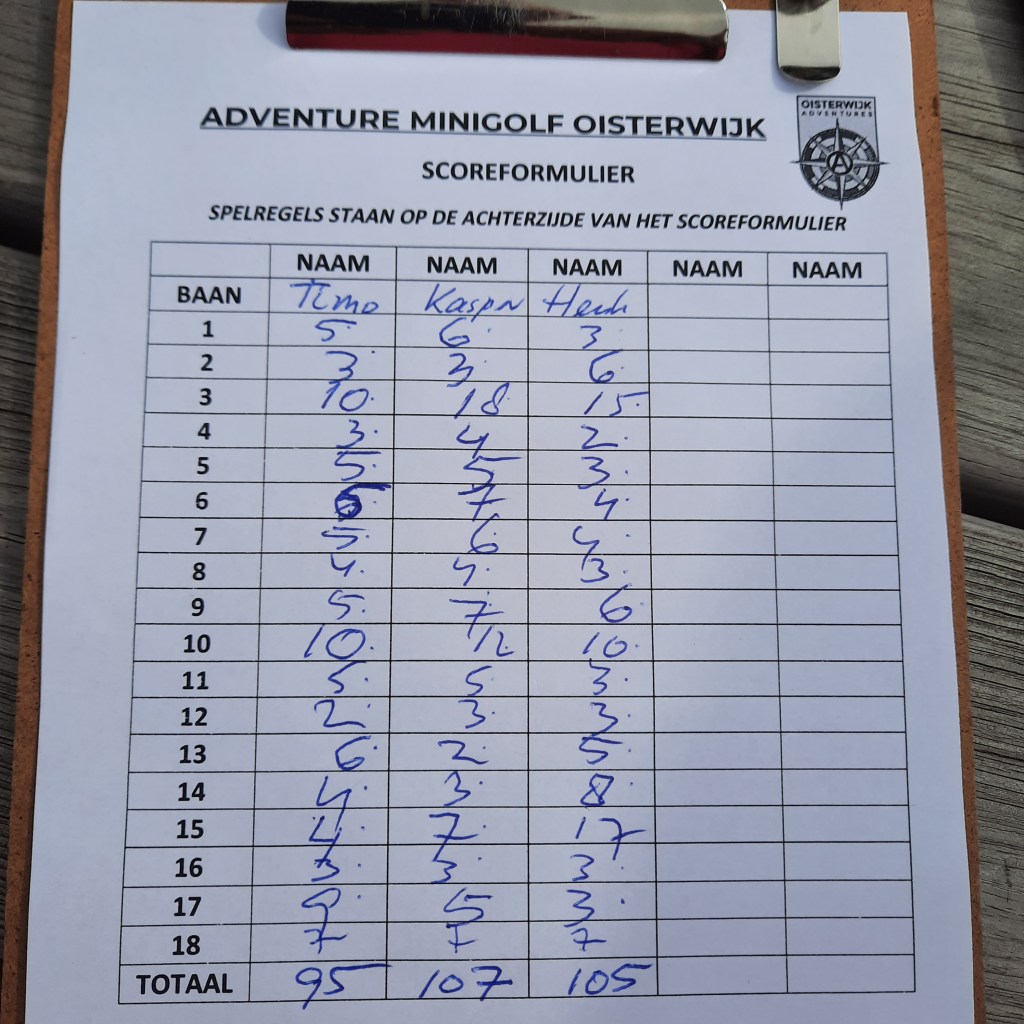 OISTERWIJK
ADVENTURES
A
ADVENTURE MINIGOLF OISTERWIJK
SCOREFORMULIER
SPELREGELS STAAN OP DE ACHTERZIJDE VAN HET SCOREFORMULIER
NAAM NAAM NAAM NAAM NAAM
BAAN Timo Kasper Henk
1 5 6 3
2 3 3 6
3 10 18 15
4 3 4 2
5 5 5 3
6 7 4
7 5 6 4
8 4 4 3
9 5 7 6
10 10 12 10
11 5 5 3
12 2 3 3
13 6 2 5
14 4 3 8
15 4 7 17
16 3 3 3
17 9 5 3
18 7 7 7
TOTAAL 95 107 105